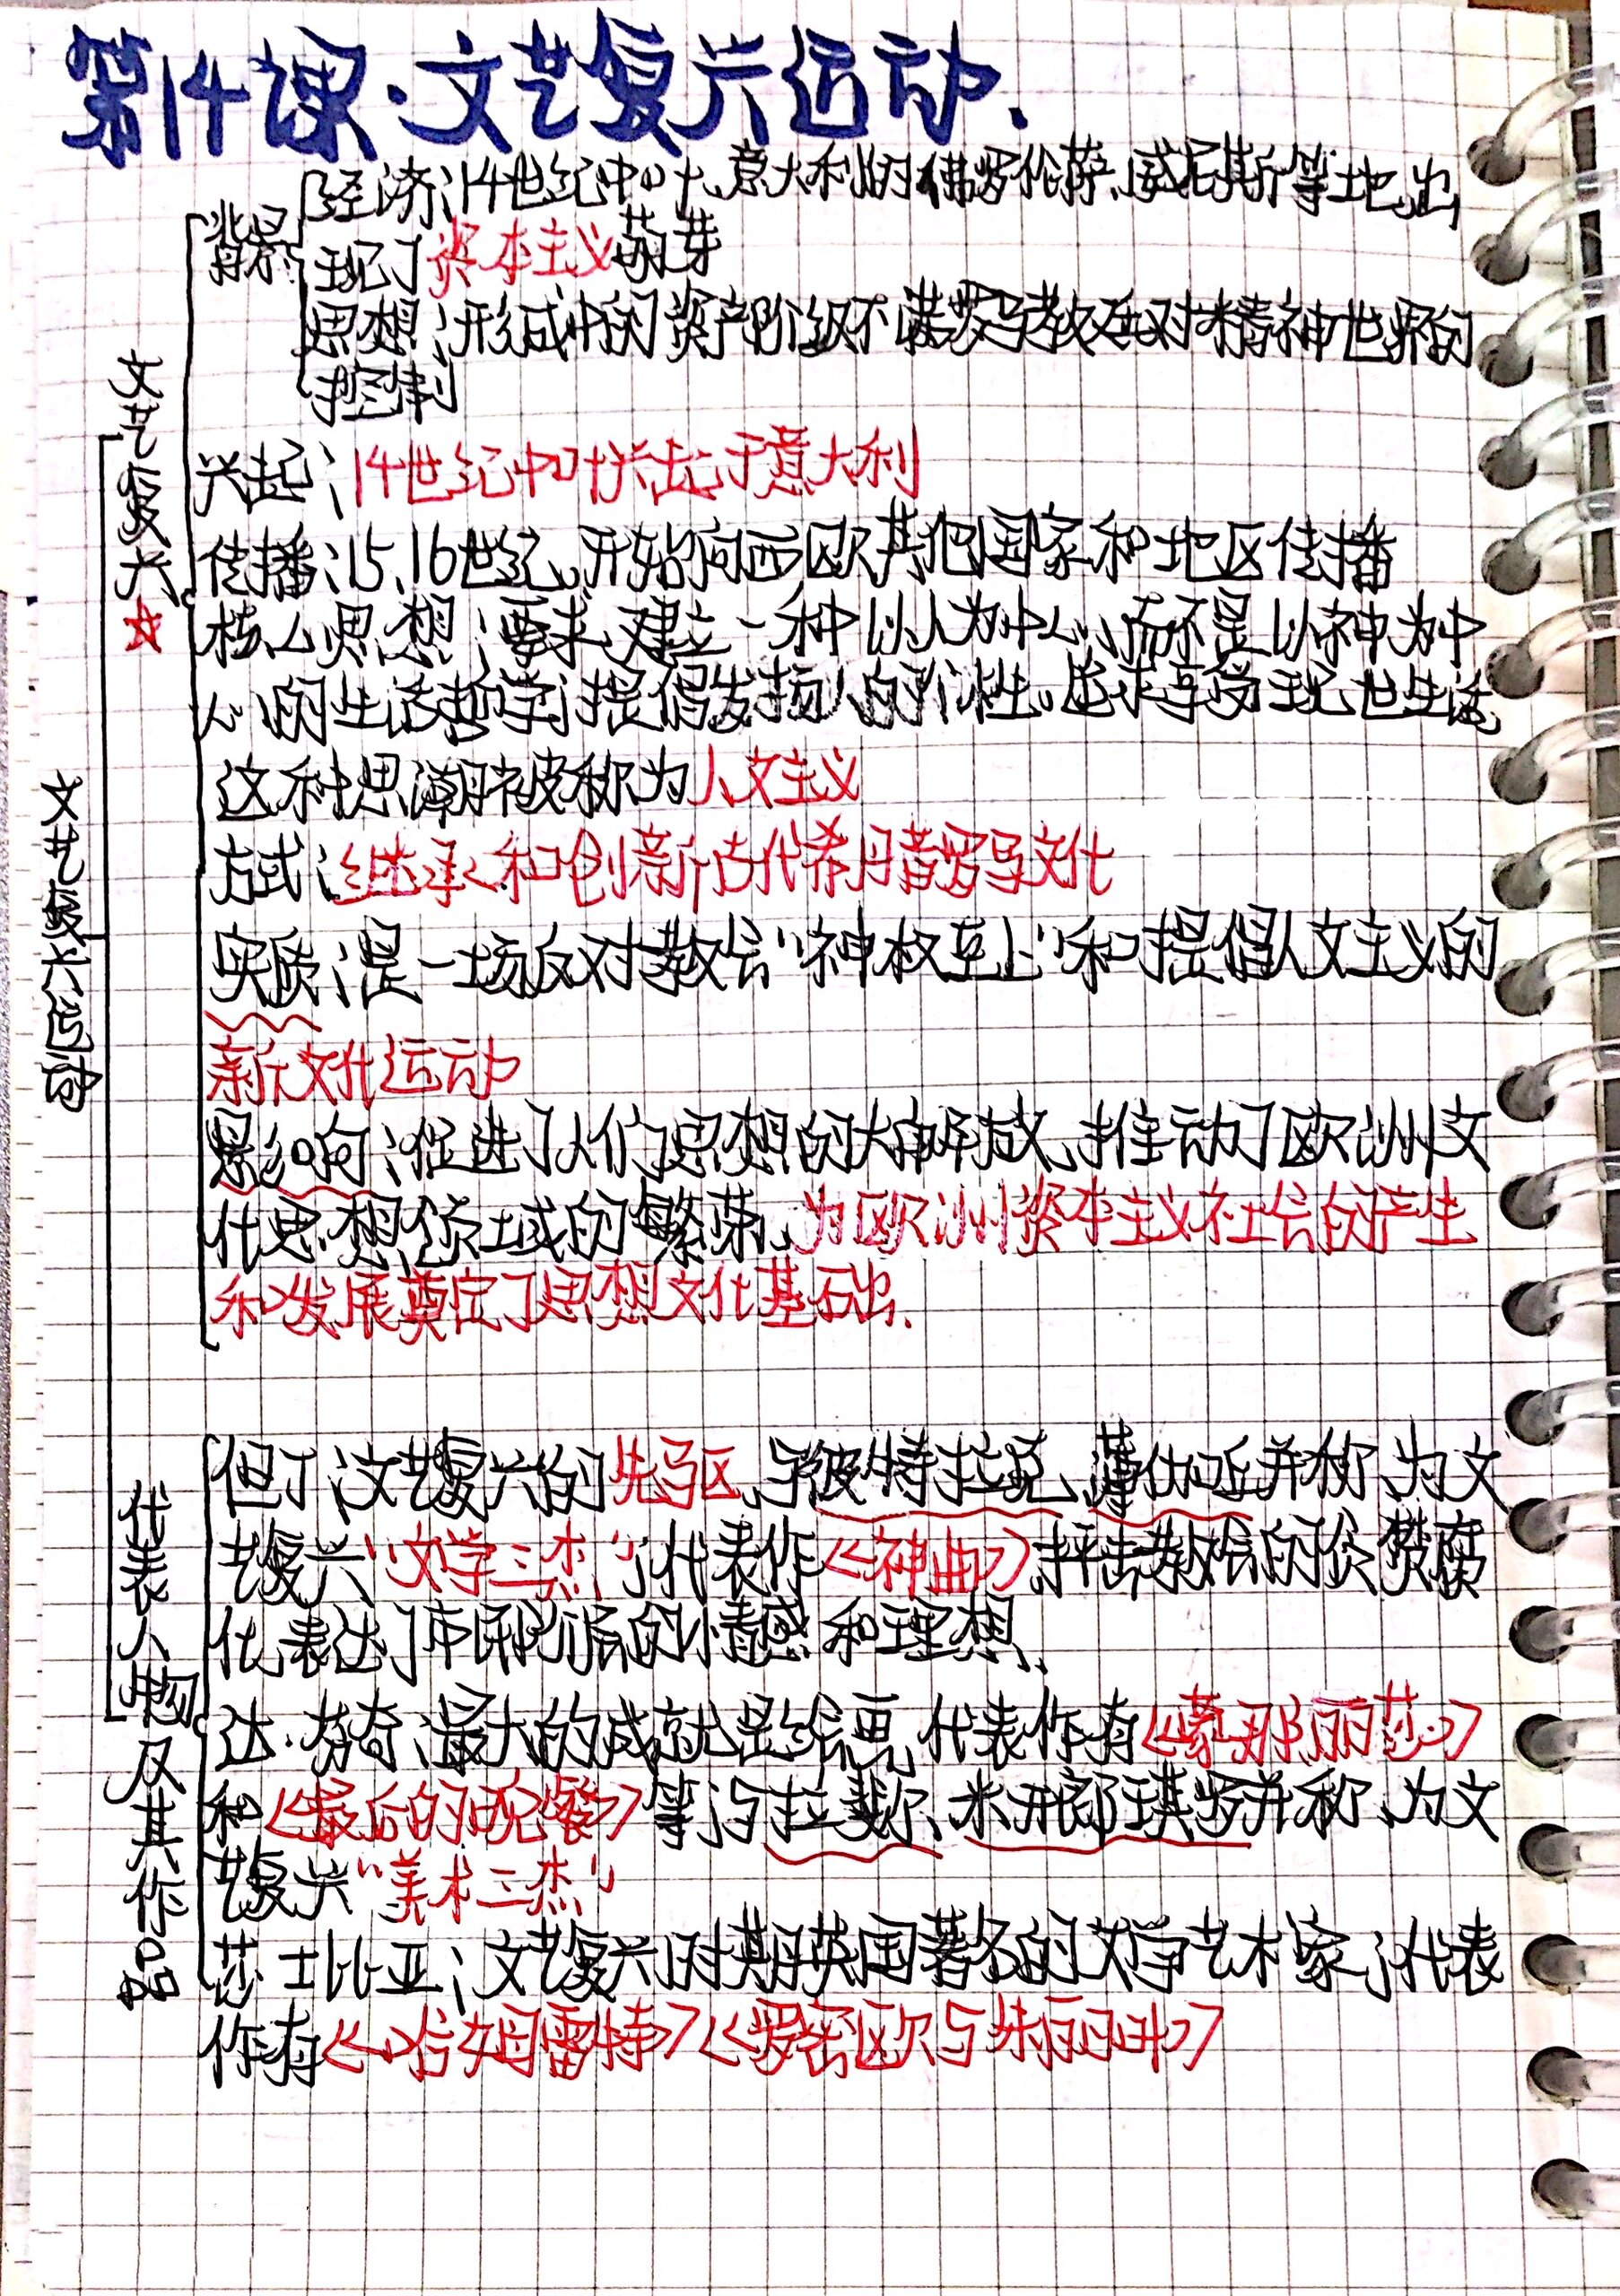 第14课·文艺复兴运动.
经济:14世纪中叶,意大利的佛罗伦萨、威尼斯等地,出
背景
现了资本主义萌芽
思想:形成中的资产阶级不满罗马教廷对精神世界的
控制
文艺复兴☆
兴起:14世纪中叶兴起于意大利
传播:15、16世纪,开始向西欧其他国家和地区传播
核心思想:要求建立一种以人为中心,而不是以神为中
心的生活哲学;提倡发扬人的个性,追求享受现世生活,
这种思潮被称为人文主义
方式:继承和创新古代希腊罗马文化
实质:是一场反对教会"神权至上"和提倡人文主义的
新文化运动
影响:促进了人们思想的大解放,推动了欧洲文
化思想领域的繁荣,为欧洲资本主义社会的产生
和发展奠定了思想文化基础.
文艺复兴运动
代表人物及其作品
但丁:文艺复兴的先驱,与彼特拉克、薄伽丘并称为文
艺复兴"文学三杰";代表作《神曲》,抨击教会的贪婪腐
化,表达了市民阶层的情感和理想.
达·芬奇:最大的成就是绘画,代表作有《蒙娜丽莎》
和《最后的晚餐》等;与拉斐尔、米开朗琪罗并称为文
艺复兴"美术三杰"
莎士比亚:文艺复兴时期英国著名的文学艺术家;代表
作有《哈姆雷特》《罗密欧与朱丽叶》